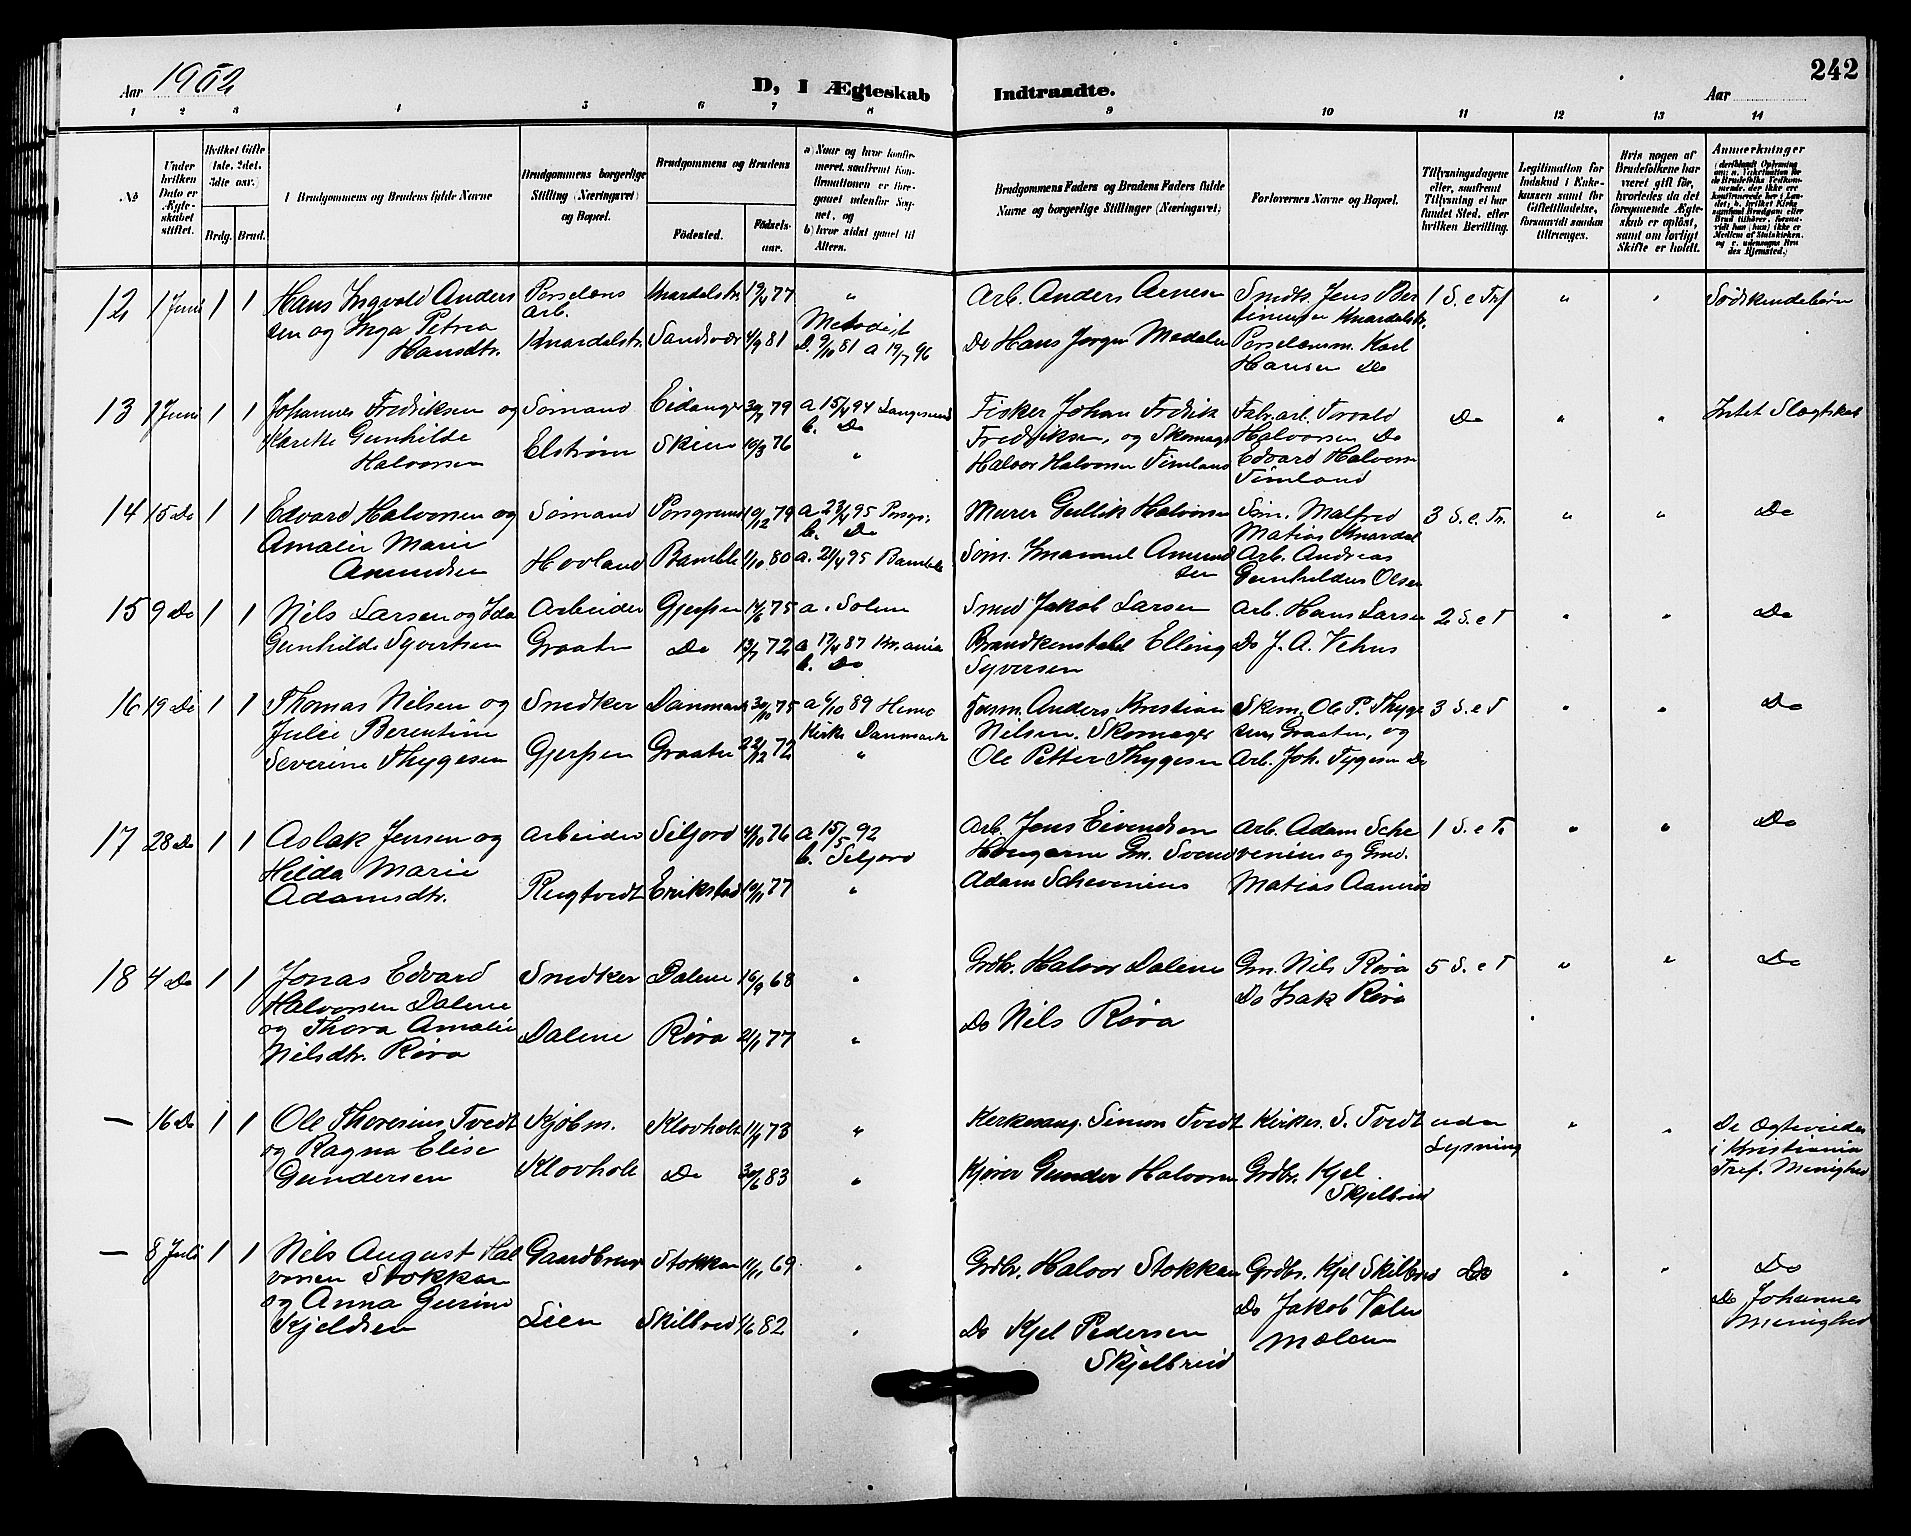 Aar 1902
D, I Ægteskab Indtraadte.
Aar
242
1 2 3 4 5 6 7 8 9 10 11 12 13 14
No
Under hvilken Dato er Ægteskabet stiftet.
Hvilket Gifte 1ste, 2det, 3die osv.
Brdg. Brud.
Brudgommens og Brudens fulde Navne
Brudgommens borgerlige Stilling (Næringsvei) og Bopæl.
Brudgommens og Brudens
Fødested.
Fødselsaar.
a) Naar og hvor konfirmeret, samt om Konfirmationen er foregaaet udenfor Sognet, og
b) hvor sidst gaaet til Alters.
Brudgommens Faders og Brudens Faders fulde Navne og borgerlige Stillinger (Næringsvei)
Forlovernes Navne og Bopæl.
Tillysningsdagene eller, saafremt Tillysning ei har fundet Sted, efter hvilken Bevilling.
Legitimation for Indskud i Enkekassen samt for Giftetilladelse, forsaavidt saadan tiltrænges.
Hvis nogen af Brudefolkene har været gift før, hvorledes da det foregaaende Ægteskab er opløst, samt om lovligt Skifte er holdt.
Anmerkninger
12 1 Juni 1 1 Hans Ingvold Anders Porselæns Knardalstr. 19/4 77 " Arb. Anders Arnesen Smdk. Jens Ber 1 S. e Tr " " Sødskendebørn
sen og Inga Petrea arb. Metodist tinusen Knardalstr.
Hansdtr. Knardalstr. Sandsvær 4/9 81 D. 9/10 81 a 19/7 96 Do Hans Jørgen Medalen Porselænsm. Karl
Hansen Do
13 1 Juni 1 1 Johannes Fredriksen og Sømand Eidanger 30/7 79 a 15/4 94 Langesund Fisker Johan Fredrik Fabr.arb. Torvald Do " " Intet Slegtskab
Karette Gunhilde b. Do Fredriksen, og Skomag. Halvorsen Do
Halvorsen Elstrøm Skien 10/3 76 " Halvor Halvorsen Tømland Edvard Halvorsen
Tømland
14 15 Do 1 1 Edvard Halvorsen og Sømand Porsgrund 19/12 79 a 23/4 95 Porsgr. Murer Gullik Halvorsen Søm. Malfred 3 S. e. Tr. " " Do
Amalie Marie b. Do Matias Knardal
Amundsen Hovland Bamble 1/10 80 a. 21/4 95 Bamble Søm. Imanuel Amund Arb. Andreas
sen Gunhildius Olsen
15 9 Do 1 1 Nils Larsen og Ida Arbeider Gjerpen 14/6 75 a. Solum Smed Jakob Larsen Arb. Hans Larsen 2 S. e T " " Do
Gunhilde Syvertsen Graaten Do 13/7 72 a 17/4 87 Kr.ania Brandkonstabel Elling Do J. A. Vehus
b. Do Syversen
16 19 Do 1 1 Thomas Nilsen og Snedker Danmark 30/10 75 a 6/10 89 Anders Kristian Skom. Ole P. Thyge 3 S. e T " " Do
Julie Berentine Kirke Danmark Nilsen. Skomager sen, Graaten, og
Severine Thygesen Gjerpen Graaten 22/12 72 " Ole Petter Thygesen Arb. Joh. Tygesen Do
17 28 Do 1 1 Aslak Jensen og Arbeider Siljord 4/10 76 a 15/5 92 Arb. Jens Eivendsen Arb. Adam Sche 1 S. e Tr " " Do
Hilda Marie b. Seljord Haugarne Gm. Svend venius og Gmd.
Adamsdtr. Rugtvedt Erikstad 10/11 77 " Adam Schevenius Matias Aamerøe
18 4 Do 1 1 Jonas Edvard Snedker Dalene 16/9 68 " Grdbr. Halvor Dalene Gm. Nils Røra 5 S. e T " " Do
Halvorsen Dalene Do Isak Røra
og Thora Amalie Dalene Røra 21/1 77 " Do Nils Røra
Nilsdtr. Røra
— 16 Do 1 1 Ole Theresius Tvedt Kjøbm. Klovholt 11/9 73 " Kirkesang. Simon Tvedt Kirkes. S. Tvedt uden " " De Ægteviedes
og Ragna Elise Lysning i Kristiania
Gundersen Klovholt Do 30/6 83 " Kjører Gunder Halvorsen Grdbr. Kjel Tref. Menighed
Skjelbreid
— 8 Juli 1 1 Nils August Hal Gaardbruger Stokkan 11/11 69 " Grdbr. Halvor Stokkan Grdbr. Kjel Skilbred Do " " Do
vorsen Stokkan Do Jakob Valen Do Johannes
og Anna Gurine Lien Skilbred 1/6 82 " Do Kjel Pedersen Mælen Menighed
Kjeldsen Skjelbreid